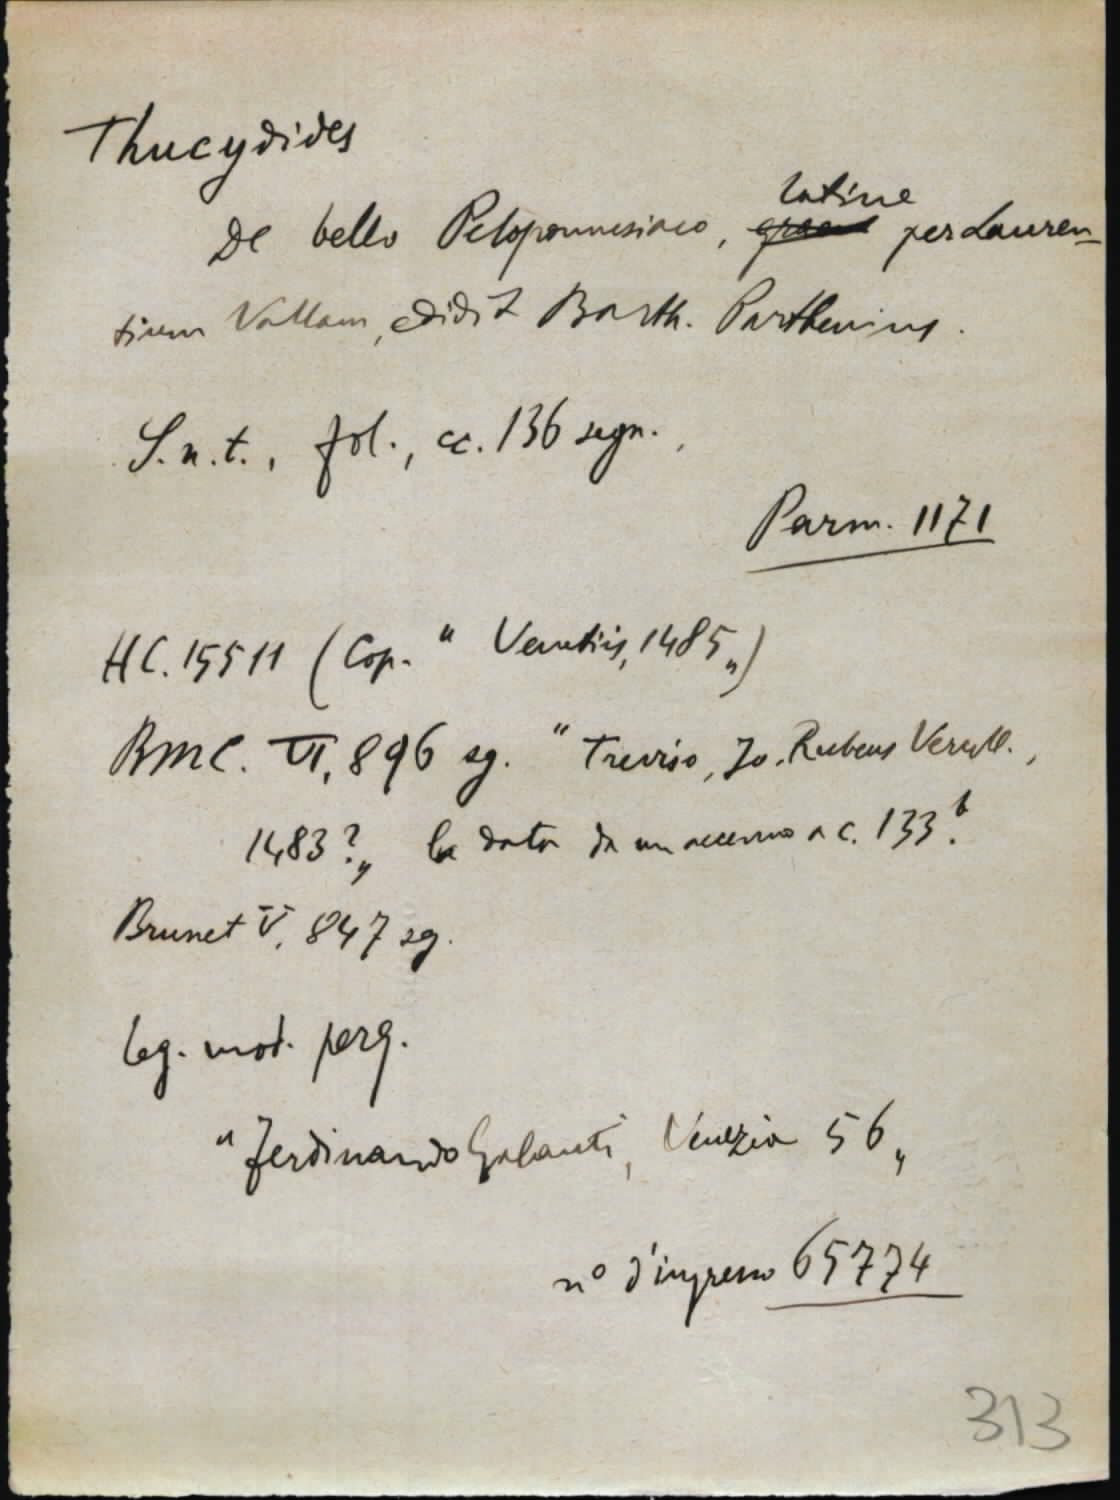 Thucydides
latine
De bello Peloponnesiaco, per Lauren=
tium Vallam, edidit Barth. Parthenius.
S.n.t., fol., cc. 136 segn.,
Parm. 1171
HC. 15511 (Cop. " Venetiis, 1485„)
BMC. VI, 896 sg. " Treviso, Jo. Rubeus Vercell.,
1483?„ la data da un accenno a c. 133b.
Brunet V, 847 sg.
leg. mod. perg.
" Ferdinando Galanti, Venezia 56„
n° d'ingresso 65774
313